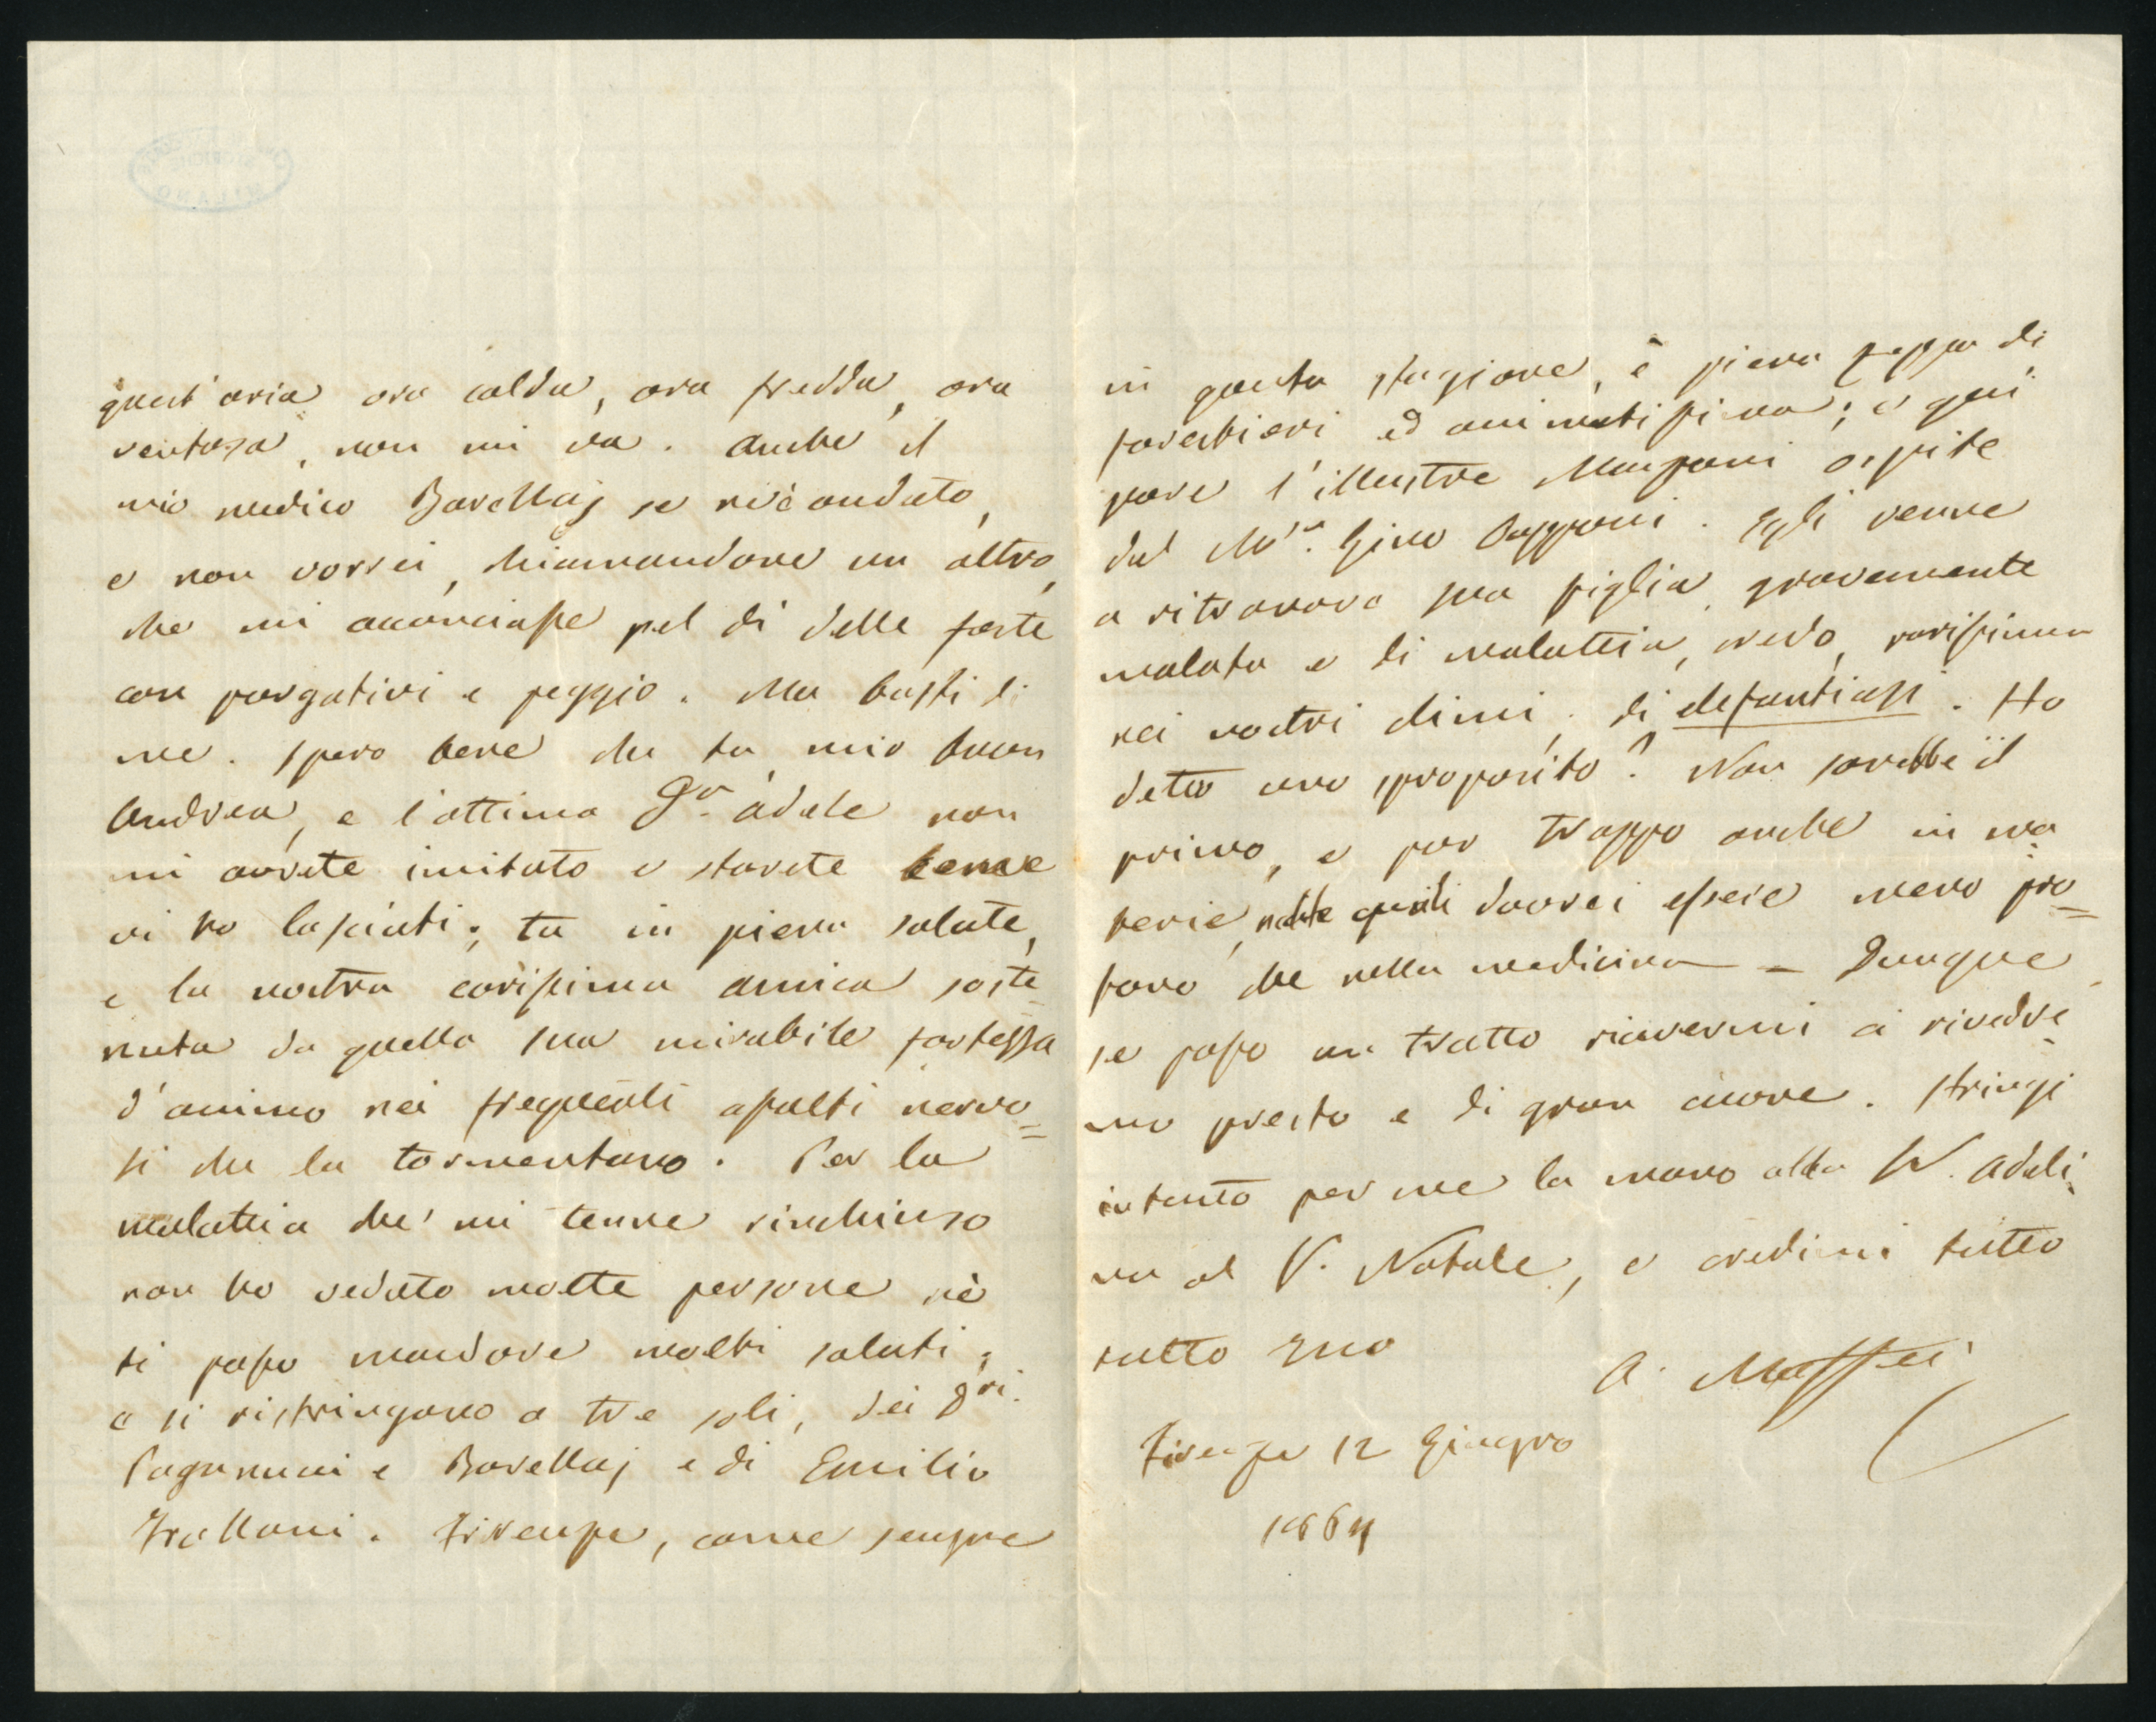 quest'aria ora calda, ora fredda, ora
ventosa, non mi va. Anche il
mio medico Barellaj se n'è andato,
e non vorrei, chiamandone un altro,
che mi acconciasse pel dì delle feste
con purgativi e peggio. Ma basti di
me. Spero bene che tu, mio buon
Andrea, e l'ottima Sra. Adele non
mi avrete imitato e starete come
vi ho lasciati; tu in piena salute,
e la nostra carissima amica soste-
nuta da quella sua mirabile fortezza
d'animo nei frequenti assalti nervo=
si che la tormentano. Per la
malattia che mi tenne rinchiuso
non ho veduto molte persone nè
ti posso mandare molti saluti;
e si ristringono a tre soli, dei Dri.
Pagannuci e Barellaj e di Emilio
Frullani. Firenze, come sempre
in questa stagione, è piena zeppa di
forestieri ed animatissima; è qui
pure l'illustre Manzoni ospite
del Mse. Gino Capponi. Egli venne
a ritrovare sua figlia gravemente
malata e di malattia, credo, rarissima
nei nostri climi, di elefantiasi. Ho
detto uno sproposito? Non sarebbe il
primo, e pur troppo anche in ma-
terie nelle quali dovrei essere meno pro=
fano che nella medicina – Dunque
se posso un tratto riavermi a rivedre-
mo presto e di gran cuore. Stringi
intanto per me la mano alla Adeli-
na al Natale, e credimi tutto
tutto tuo
A. Maffei
Firenze 12 Giugno
1864
MILANO